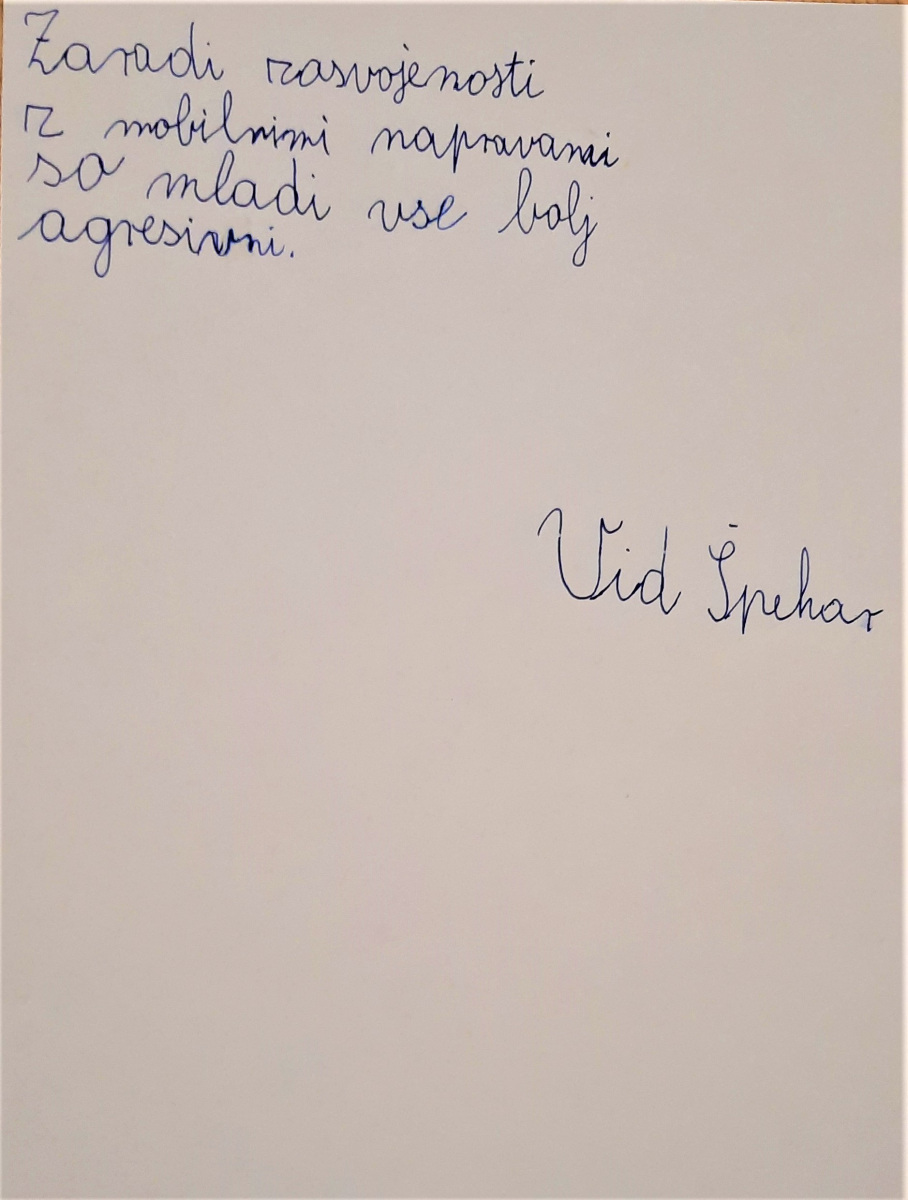 Zaradi zasvojenosti
z mobilnimi napravami
so mladi vse bolj
agresivni.
Vid Špehar